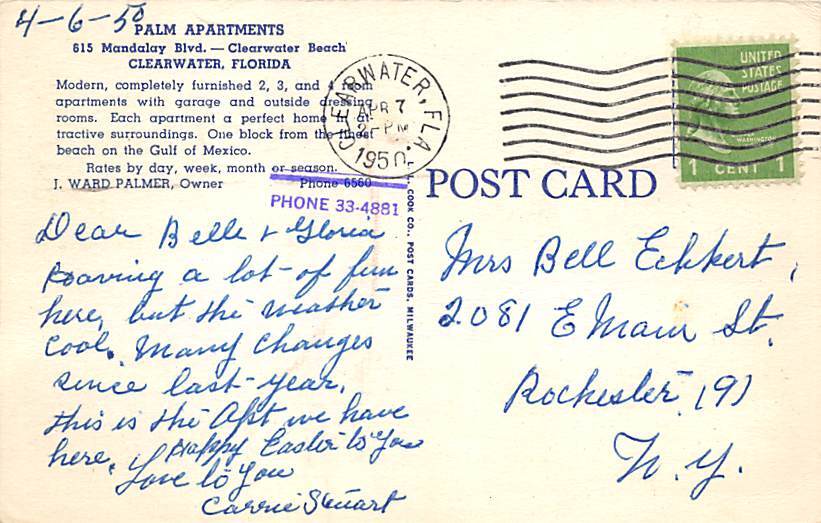 4-6-50
PALM APARTMENTS
615 Mandalay Blvd. — Clearwater Beach
CLEARWATER, FLORIDA
Modern, completely furnished 2, 3, and 4 room
apartments with garage and outside dressing
rooms. Each apartment a perfect home in at-
tractive surroundings. One block from the finest
beach on the Gulf of Mexico.
Rates by day, week, month or season.
J. WARD PALMER, Owner Phone 6560
PHONE 33-4881
CLEARWATER, FLA.
APR 7
2 - PM
1950
UNITED
STATES
POSTAGE
WASHINGTON
1 CENT 1
POST CARD
L. COOK CO., POST CARDS, MILWAUKEE
Dear Belle & Gloria
Having a lot of fun
here, but the weather
cool. Many changes
since last year.
this is the Apt we have
here. Happy Easter to You
Love to you
Carrie Stuart
Mrs Bell Eckkert,
2081 E Main St.
Rochester (9)
N.Y.